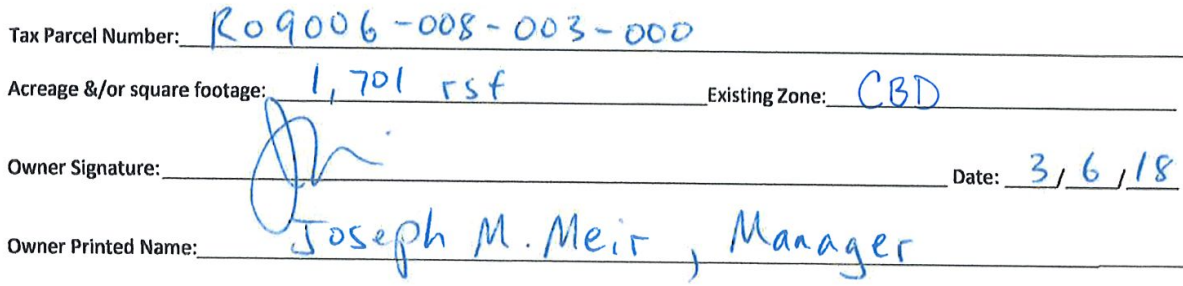 Tax Parcel Number: R09006-008-003-000
Acreage &/or square footage: 1,701 rsf Existing Zone: CBD
Owner Signature: Date: 3/6/18
Owner Printed Name: Joseph M. Meir, Manager